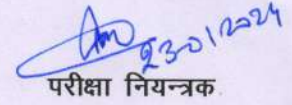 23-01-2024
परीक्षा नियन्त्रक